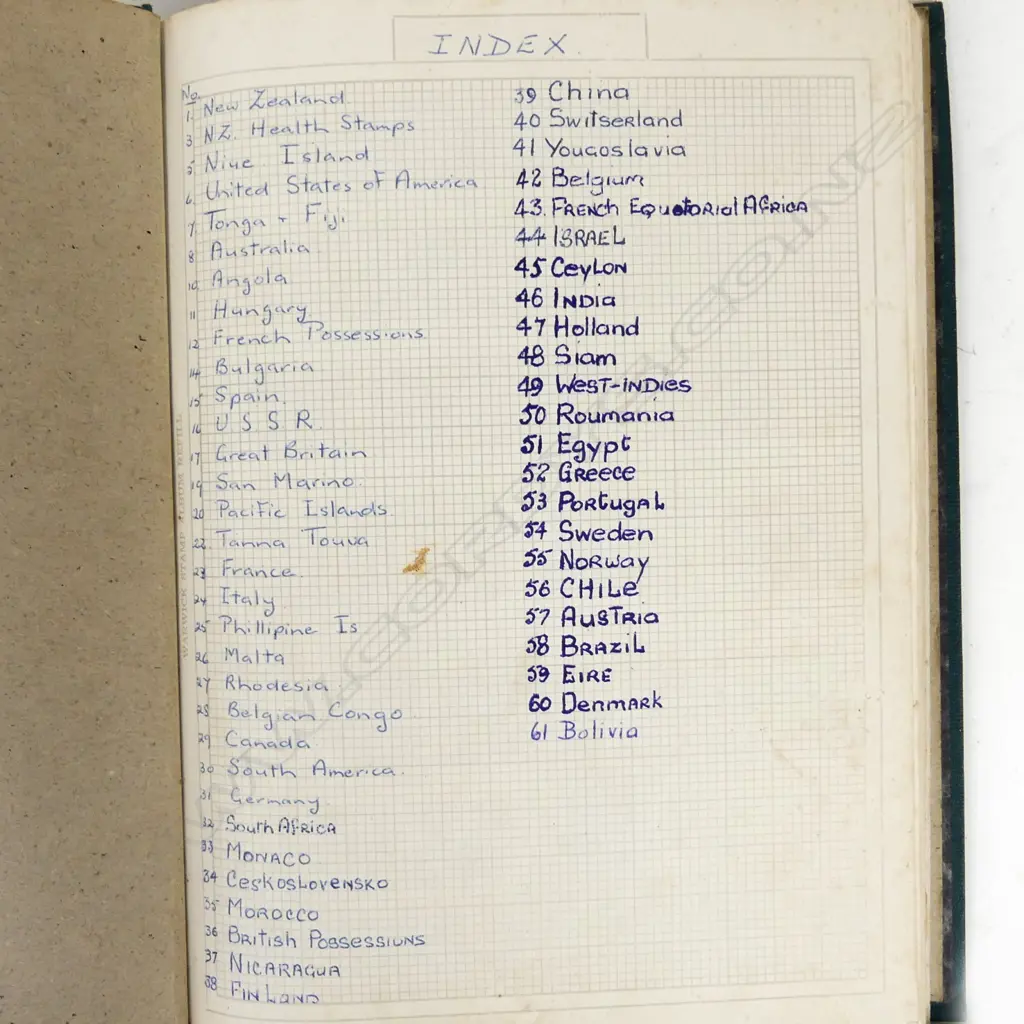 INDEX.
No.
1. New Zealand
3 NZ. Health Stamps
5 Niue Island
6. United States of America
7. Tonga + Fiji
8 Australia
10 Angola
11 Hungary
12 French Possessions
14 Bulgaria
15 Spain.
16 U S S R
17 Great Britain
19 San Marino.
20 Pacific Islands
22 Tanna Touva
23 France.
24 Italy
25 Phillipine Is
26 Malta
27 Rhodesia
28 Belgian Congo
29 Canada
30 South America.
31 Germany
32 South Africa
33 MONACO
34 CeskosLovensko
35 MOROCCO
36 British Possessiuns
37 NICARAGUA
38 FINLAND
39 China
40 Switserland
41 Yougoslavia
42 Belgium
43. FRENCH Equatorial AFRICA
44 ISRAEL
45 CeyLon
46 INDIA
47 Holland
48 Siam
49 WEST-INDIES
50 Roumania
51 Egypt
52 GReece
53 PORtugaL
54 Sweden
55 NORway
56 CHILe
57 AusTRia
58 BRAZiL
59 EIRE
60 DenmARk
61 Bolivia